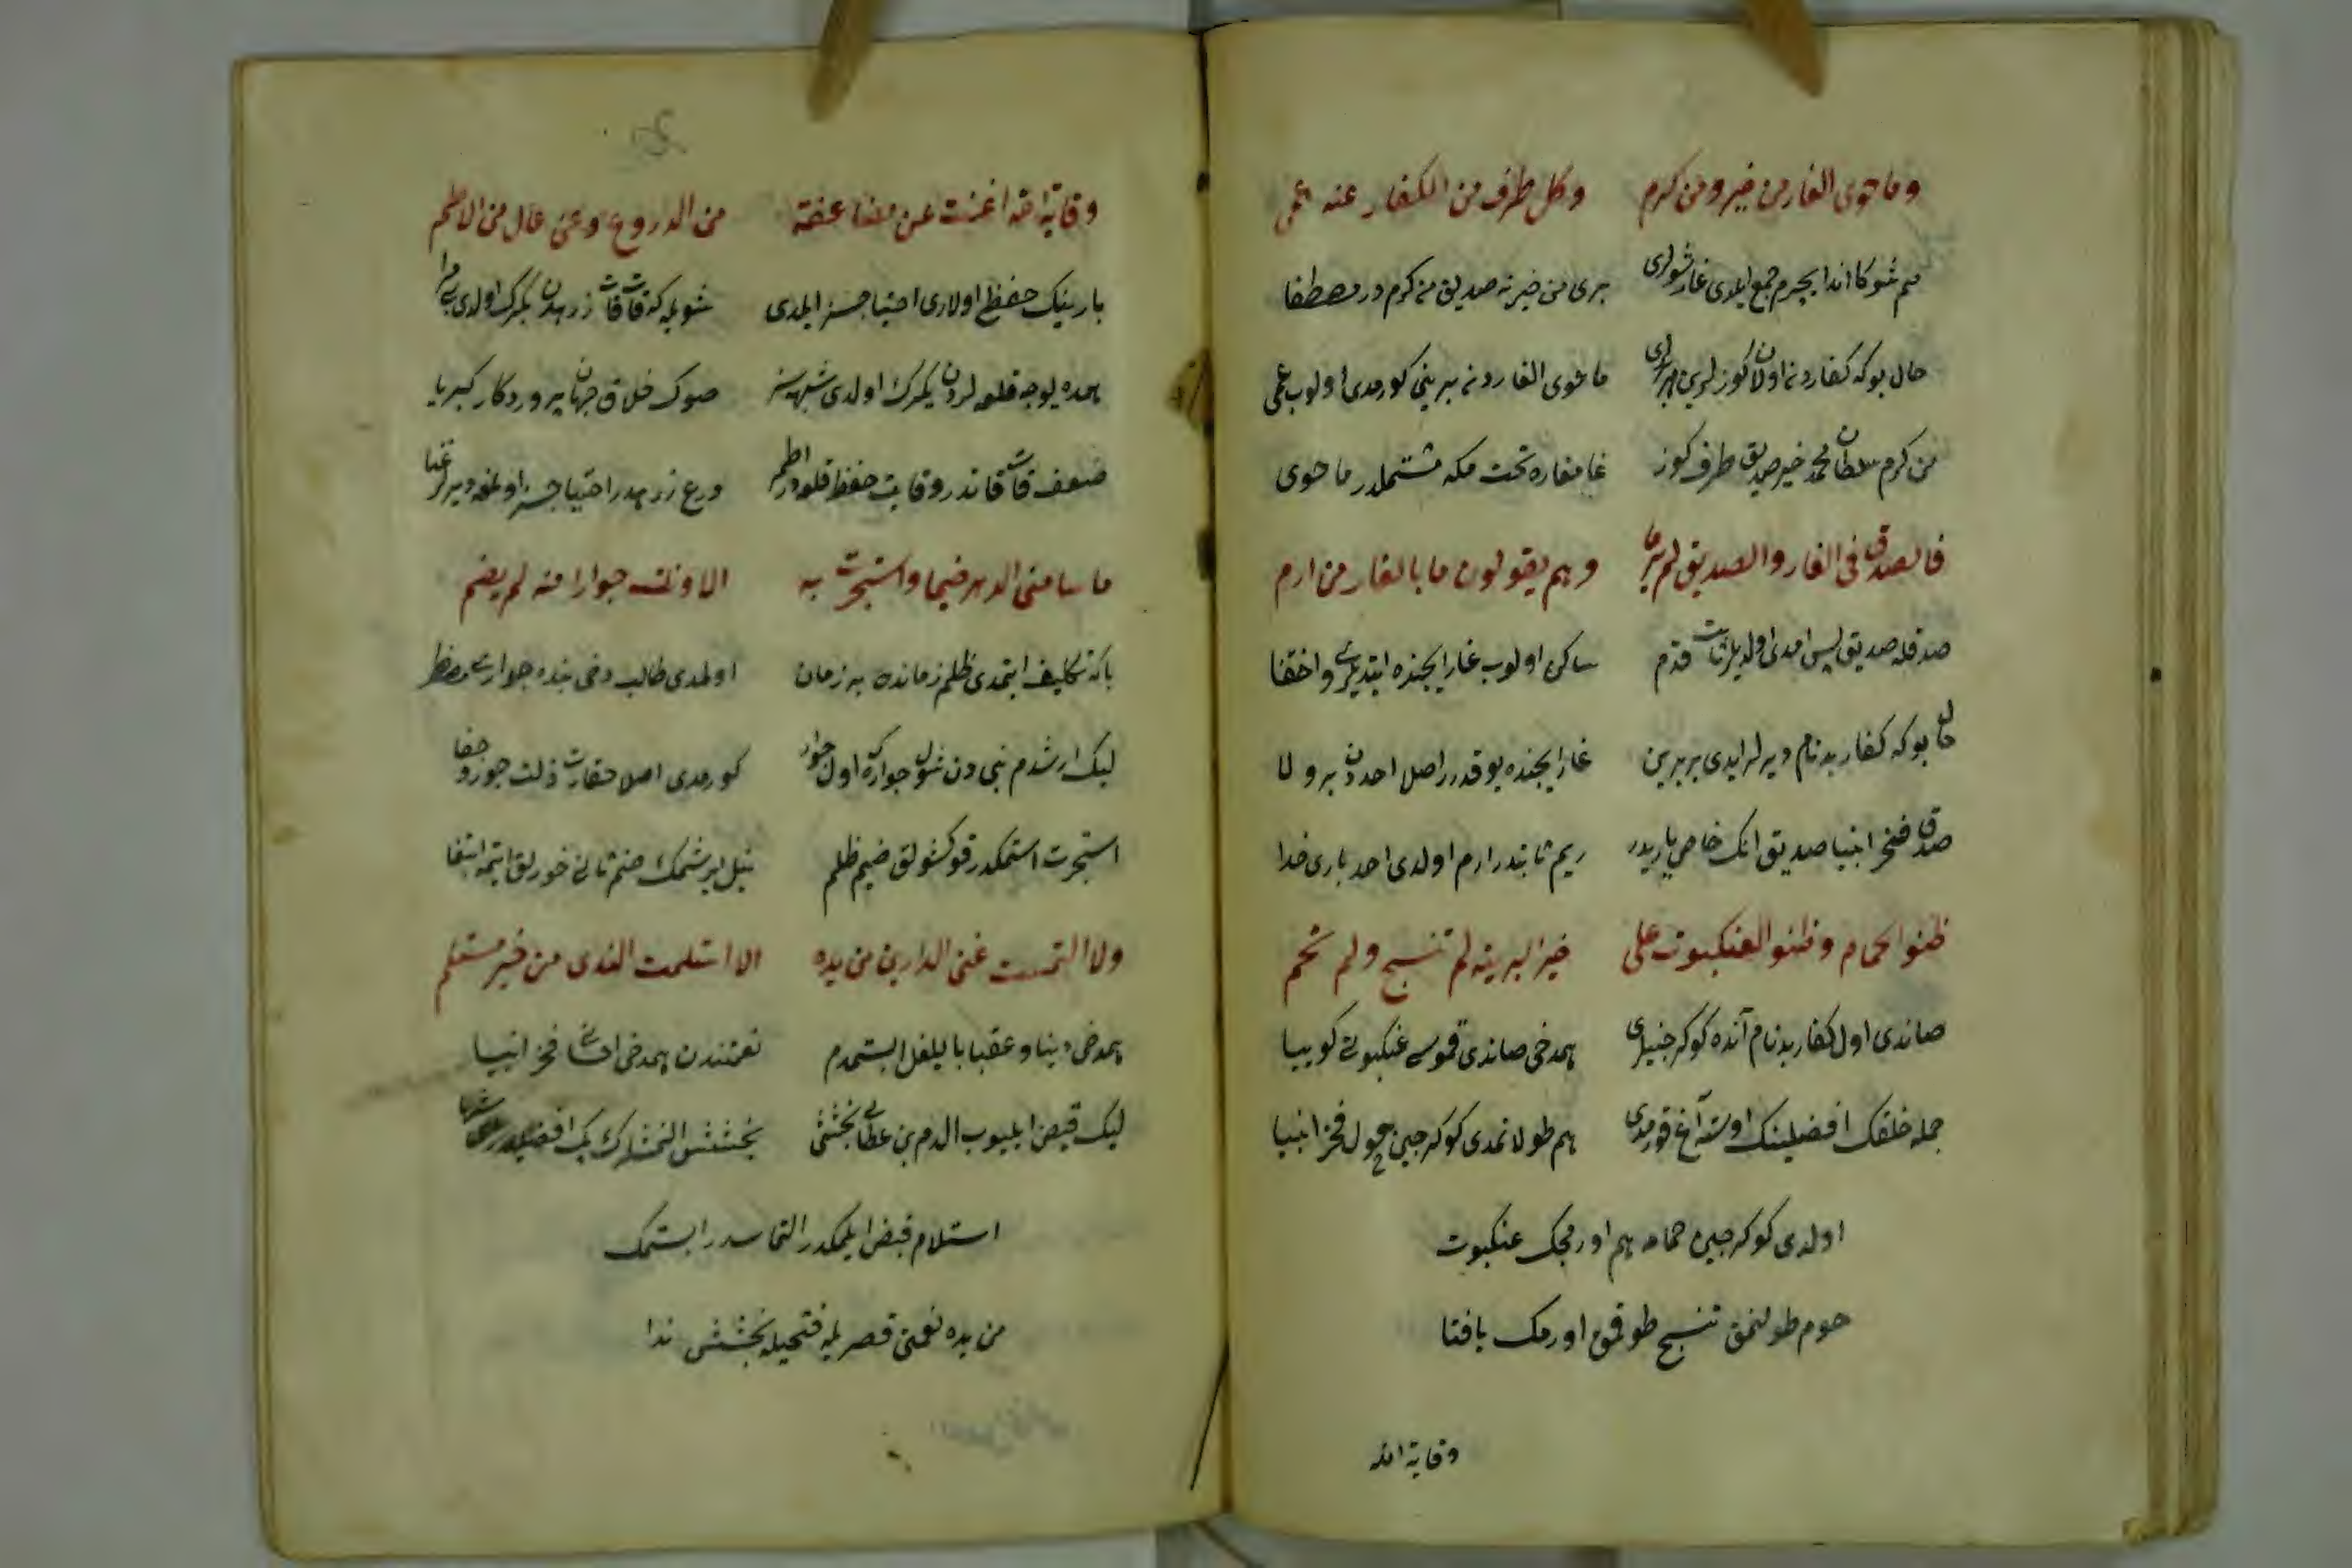 وما حوى الغار من خير ومن كرم وكل طرف من الكفار عنه عمى
هم شو كا اندا ايچرم جمع ايلدى غار شولرى برى من خير نه صديق من كرم در مصطفا
حال بوكه كفار دنه اولان كوزلرين ما حوى الغار دنه بريني كورمدى اولوب عمى
من كرم سلطان محمد خير صديق طرف كوز غا مغاره تحت مكه مشتملدر ما حوى
فالصدق فى الغار والصديق لم يرما وهم يقولون ما بالغار من ارم
صدقله صديق پس امدى اولديلر ثابت قدم ساكن اولوب غار ايچنده ايتديلر واختفا
حال بوكه كفار بدنام ديرلر ايدى بربرين غار ايچنده يوقدر اصل احددن برولا
صدق فخر انبيا صديق انك خاص ياريدر ريم ثابتدر ارم اولدى احد بارى خدا
ظنوا الحمام وظنوا العنكبوت على خير البرية لم تنسج ولم تحم
صاندى اول كفار بدنام آنده كوكرجينلرى همدخى صاندى قموسى عنكبوتى كوييا
جمله خلقك افضلينك اوسته آغ قورمدى هم طولانمدى كوكرجين چول فخر انبيا
اولدى كوكرجين حمامه هم اورمجك عنكبوت
حوم طولنمق تنسج طوقمق اورمك بافتا
وقاية الله
وقاية الله اغنت عن مضاعفة من الدروع وعن عال من الاطم
بارينك حفظ اولارى احتياجسز ايلدى شويله كه قات قات زرهدن يكرك اولدى
همده يوجه قلعه لردن يكرك اولدى شبهه سز صوك خلاق جهان پروردكار كبريا
ضعف قات قاتدر وقايت حفظ قلعه در اطم درع زرهدر احتياجسز اولمغه ديرلر غنا
ما سامنى الدهر ضيما واستجرت به الا ونلت جوارا منه لم يضم
باكه تكليف ايتمدى ظلم زمانده بر زمان اولمدى طالب دخى بنده جوارى مصطفى
ليك ارشدم نبى دن شول جواره اول جوار كورمدى اصلا حقارت ذلت جور وجفا
استجرت استمكدر قوكشولق ضيم ظلم نيل ايرشمك ضم ثانى خورلق ايتمه ابتغا
ولا التمست غنى الدارين من يده الا استلمت الندى من خير مستلم
همدخى دنيا وعقبا بايلغن ايستمدم نعمتندن همدخى احسانى فخر انبيا
ليك قبض ايليوب الدم بن عطاى بخششى بخششى النمشلرك يك افضلندر
استلام قبض ايلمكدر التماسدر ايستمك
من يده نعمتى قصر يله فتحيله بخششى ندا